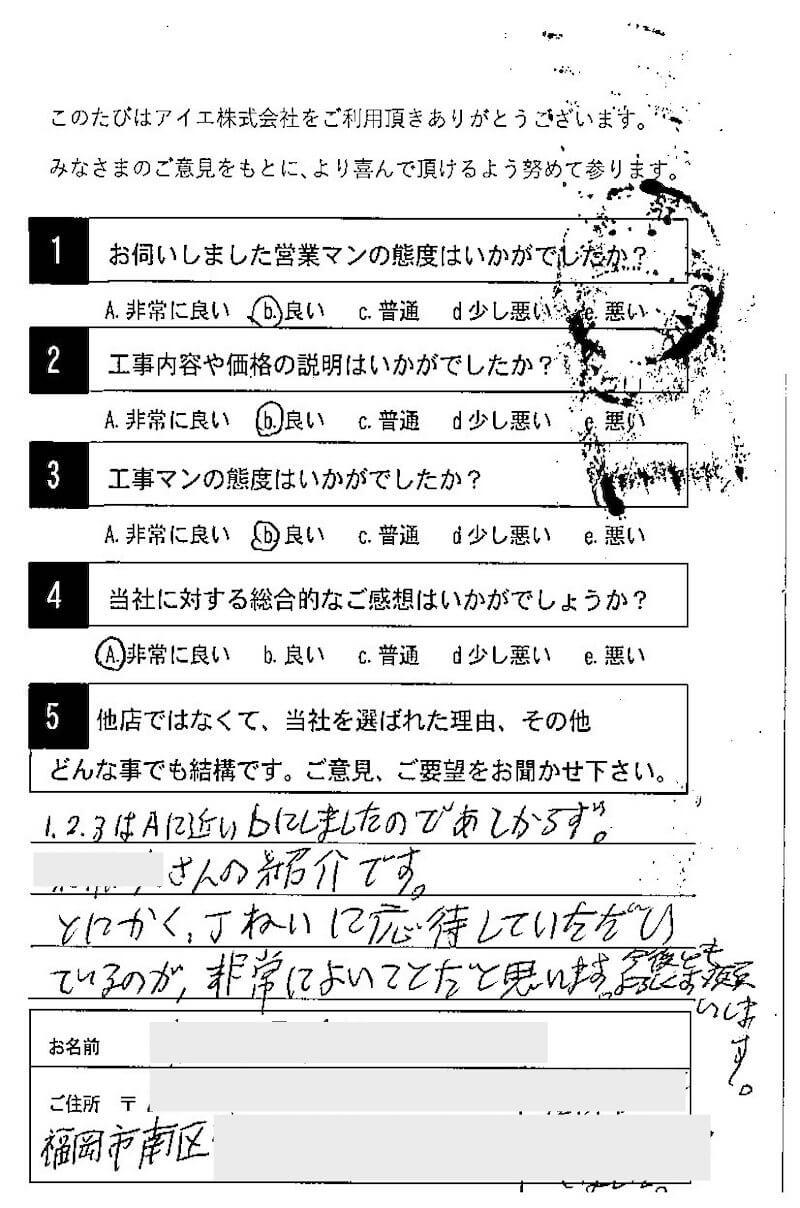 このたびはアイエ株式会社をご利用頂きありがとうございます。
みなさまのご意見をもとに、より喜んで頂けるよう努めて参ります。
1 お伺いしました営業マンの態度はいかがでしたか？
A. 非常に良い b. 良い c. 普通 d 少し悪い e. 悪い
2 工事内容や価格の説明はいかがでしたか？
A. 非常に良い b. 良い c. 普通 d 少し悪い e. 悪い
3 工事マンの態度はいかがでしたか？
A. 非常に良い b 良い c. 普通 d 少し悪い e. 悪い
4 当社に対する総合的なご感想はいかがでしょうか？
A. 非常に良い b. 良い c. 普通 d 少し悪い e. 悪い
5 他店ではなくて、当社を選ばれた理由、その他
どんな事でも結構です。ご意見、ご要望をお聞かせ下さい。
1.2.3はAに近いbにしましたのであしからず。
さんの紹介です。
とにかく、丁ねいに応待していただひ
ているのが、非常によいことだと思います。
今後とも
よろしくお願
いしま
す。
お名前
ご住所 〒
福岡市南区